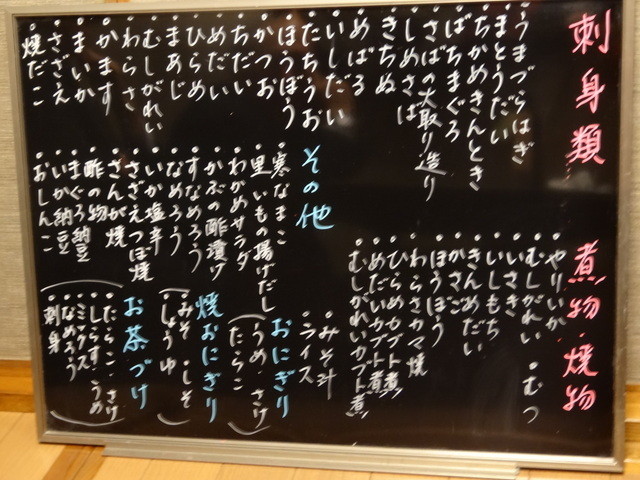 刺身類
うまづらはぎ
まとうだい
ちかめきんとき
ばちまぐろ
さばの大取り造り
しめさば
きちぬ
めばる
いしだい
たちうお
ほうぼう
かつお
ちだい
めだい
ひらめ
まあじ
むしがれい
わらさ
かます
まいか
さざえ
焼だこ
煮物・焼物
やりいか
むしがれい・むつ
いさき
いしもち
きんめだい
かさご
ほうぼう
わらさカマ焼
ひらめカブト煮
めだいカブト煮
むしがれいカブト煮
その他
寒なまこ
里いもの揚げだし
わかめサラダ
かぶの酢漬け
すなめろう
なめろう
いか塩辛
さざえつぼ焼
さんが焼
酢の物
まぐろ納豆
いか納豆
おしんこ
みそ汁
ライス
おにぎり
(うめ・さけ
たらこ)
焼おにぎり
(みそ・しそ
しょうゆ)
お茶づけ
(たらこ・さけ
しらす・うめ
ミックス
なめろう
刺身)